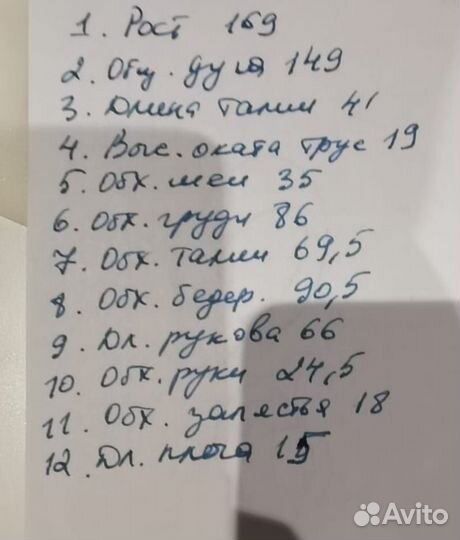 1. Рост 169
2. Общ. дуга 149
3. Длина талии 41
4. Выс. оката трус 19
5. Обх. шеи 35
6. Обх. груди 86
7. Обх. талии 69,5
8. Обх. бедер. 90,5
9. Дл. рукова 66
10. Обх. руки 24,5
11. Обх. запястья 18
12. Дл. плеча 15
Avito